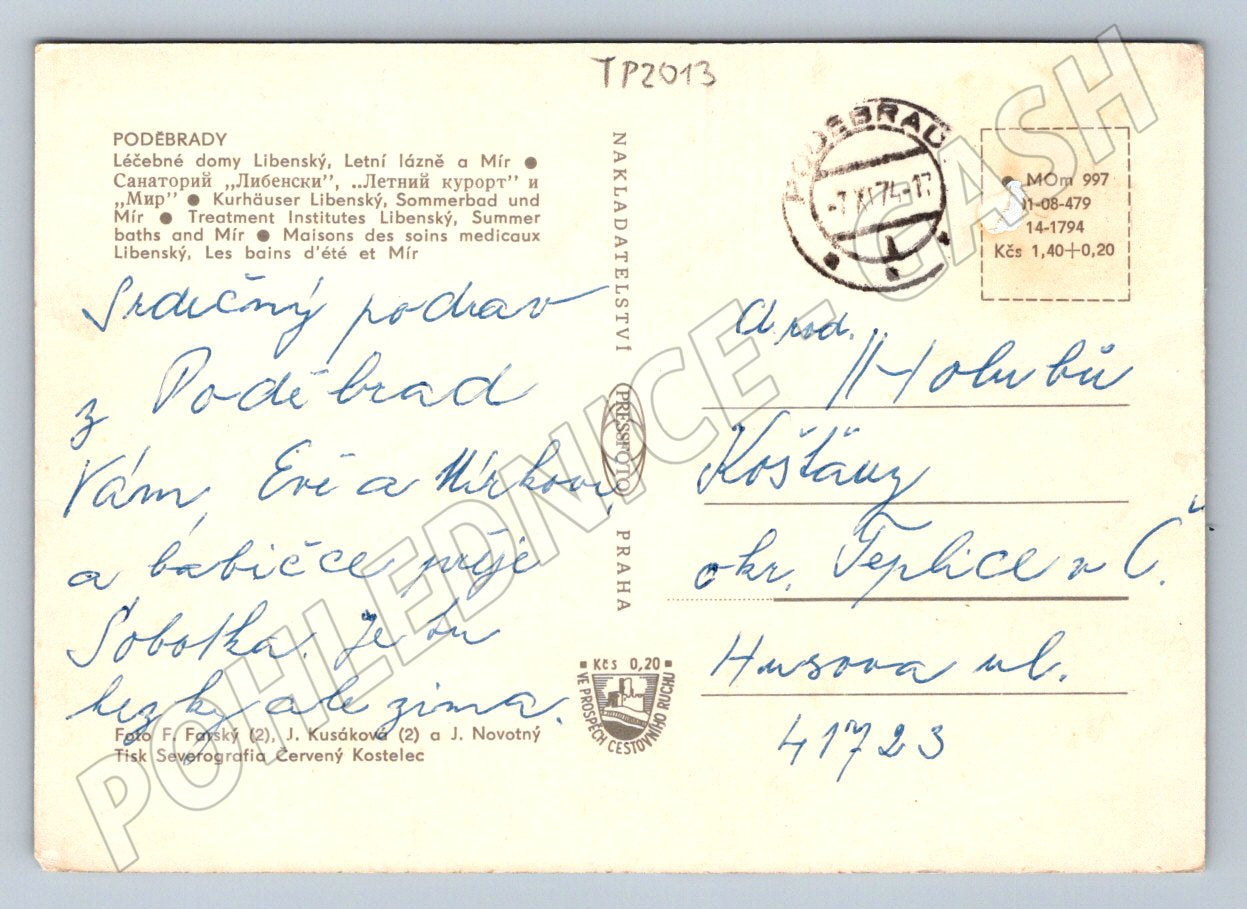 TP2013
PODĚBRADY
Léčebné domy Libenský, Letní lázně a Mír ●
Санаторий „Либенски", „Летний курорт" и
„Мир" ● Kurhäuser Libenský, Sommerbad und
Mír ● Treatment Institutes Libenský, Summer
baths and Mír ● Maisons des soins medicaux
Libenský, Les bains d'été et Mír
Srdečný pozdrav
z Poděbrad
Vám, Evě a Mírkovi,
a babičce přeje
Sobotka. Je tu
hezky ale zima.
Foto F. Farský (2), J. Kusáková (2) a J. Novotný
Tisk Severografia Červený Kostelec
NAKLADATELSTVÍ
PRESSFOTO
PRAHA
Kčs 0,20
VE PROSPĚCH CESTOVNÍHO RUCHU
PODĚBRAD
-7.XI.74-17
1
MOm 997
11-08-479
14-1794
Kčs 1,40+0,20
rod.
Holubů
Košťany
okr. Teplice v Č.
Husova ul.
41723
POHLEDNICE - GASH